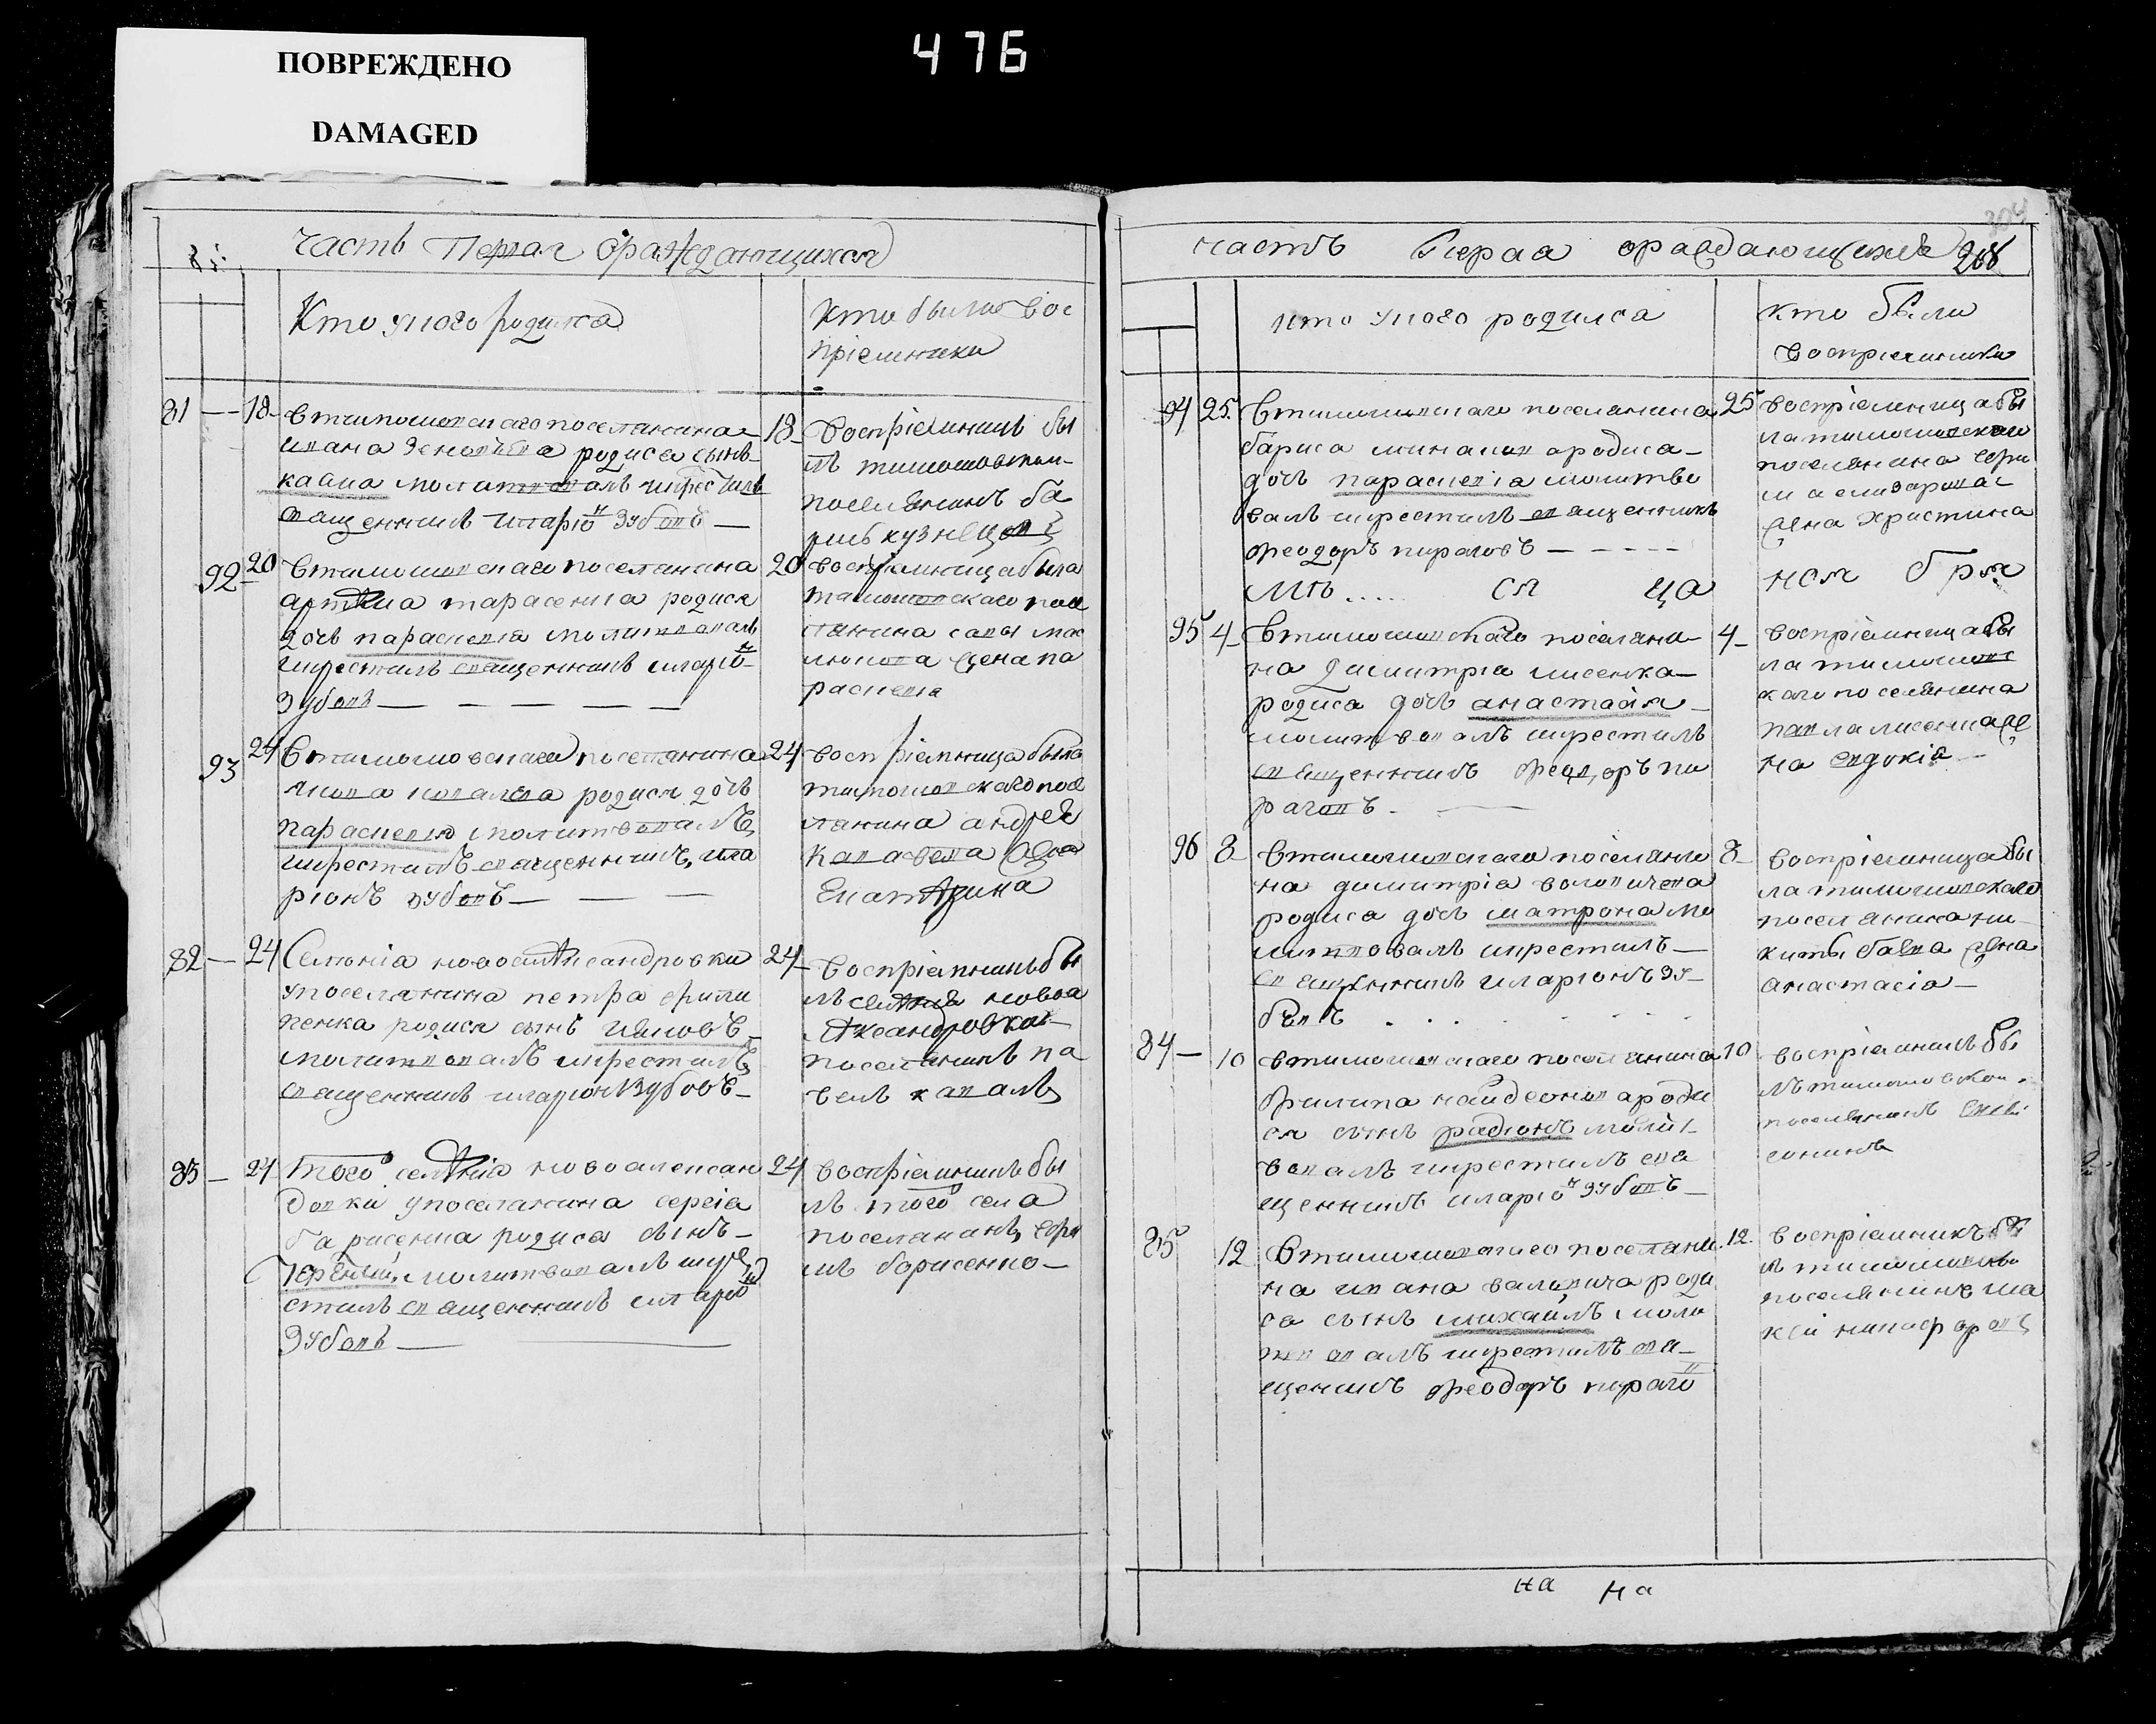 476
ПОВРЕЖДЕНО
DAMAGED
часть Первая ораждающихся
Кто укого родился
Кто были вос
пріемники
81 18 Втимошовскаго поселянина
ивана родиса сынъ
молитвовалъ икрестилъ
священникъ иларіо Зубовъ
18 Воспріемникъ бы
лъ тимошовскои
поселянинъ ба
рисъ кузнецовъ
92 20 Втимошовскаго поселянина
артема тарасенка родися
дочь параскевіа молитвовалъ
икрестилъ священникъ иларіо
Зубовъ
20 воспріемница была
тимошовскаго посе
лянина савы мас
люкова жена па
раскевіа
93 24 Втимошовскаго поселянина
якова ковалева родися дочь
параскевіа молитвовалъ
икрестилъ священникъ, ила
ріонъ зубовъ
24 воспріемница была
тимошовскаго посе
лянина андрея
жена
Екатерина
82 24 Селеніа новоалександровки
упоселянина петра фили
пенка родися сынъ іяковъ
молитвовалъ икрестилъ
священникъ иларіонъ Зубовъ
24 Воспріемникъ бы
лъ новоа
лександровки
поселянинъ па
велъ
83 24 Того селеніа новоалексан
довки упоселянина сергіа
барисенка родиса сынъ
молитвовалъ икре
стилъ священникъ иларіо
Зубовъ
24 воспріемникъ бы
лъ того села
поселянинъ ефи
мъ борисенко
часть Перваа ораждающихся
268
кто укого родился
кто были
воспріемники
94 25 Втимошовскаго поселянина
бариса миначова родиса
дочь параскевіа молитво
валъ икрестилъ священникъ
феодоръ пираговъ
25 воспріемница бы
ла тимошовскаго
поселянина ефи
ма
жена христина
Мѣ..... ся ца ноя бря
95 4 Втимошовскаго поселяни
на димитріа лисенка
родиса дочь анастасіа
молитвовалъ икрестилъ
священникъ феодоръ пи
раговъ
4 воспріемница бы
ла тимошовс
каго поселянина
павла лисенка же
на евдокіа
96 8 Втимошовскаго поселяни
на димитріа
родиса дочь матрона мо
литвовалъ икрестилъ
священникъ иларіонъ зу
бовъ
8 воспріемница бы
ла тимошовскаго
поселянина ни
киты жена
анастасіа
84 10 втимошовскаго поселянина
филипа родис
ся сынъ радіонъ молит
вовалъ икрестилъ свя
щенникъ иларіо зубовъ
10 воспріемникъ бы
лъ тимошовскои
поселянинъ
85 12 Втимошовскаго поселяни
на ивана роди
са сынъ михаилъ моли
твовалъ икрестилъ свя
щеникъ феодоръ пираго
12 воспріемникъ бы
лъ тимошовскои
поселянинъ
никифоровъ
на на